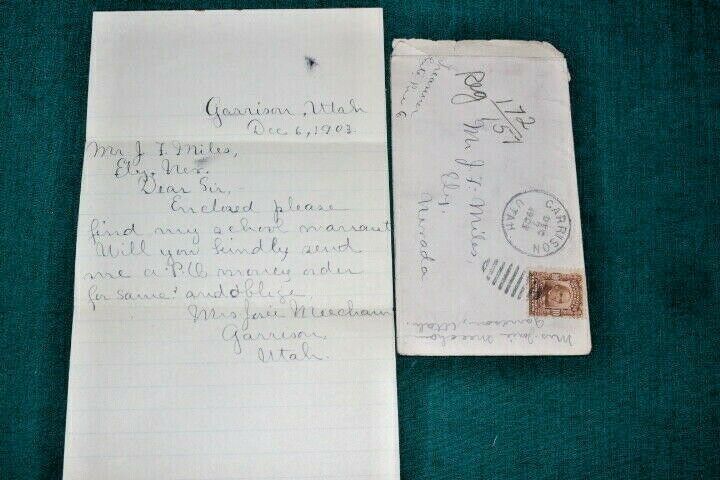 Garrison, Utah
Dec 6, 1903.
Mr J. F. Miles,
Ely. Nev.
Dear Sir,-
Enclosed please
find my school warrant
Will you kindly send
me a P.O. money order
for same and oblige
Mrs Josie Meecham
Garrison,
Utah.
Reg 172
151
Mr J. F. Miles
Ely,
Nevada
GARRISON
DEC
UTAH
Mrs. Josie Meecham
Garrison, Utah.